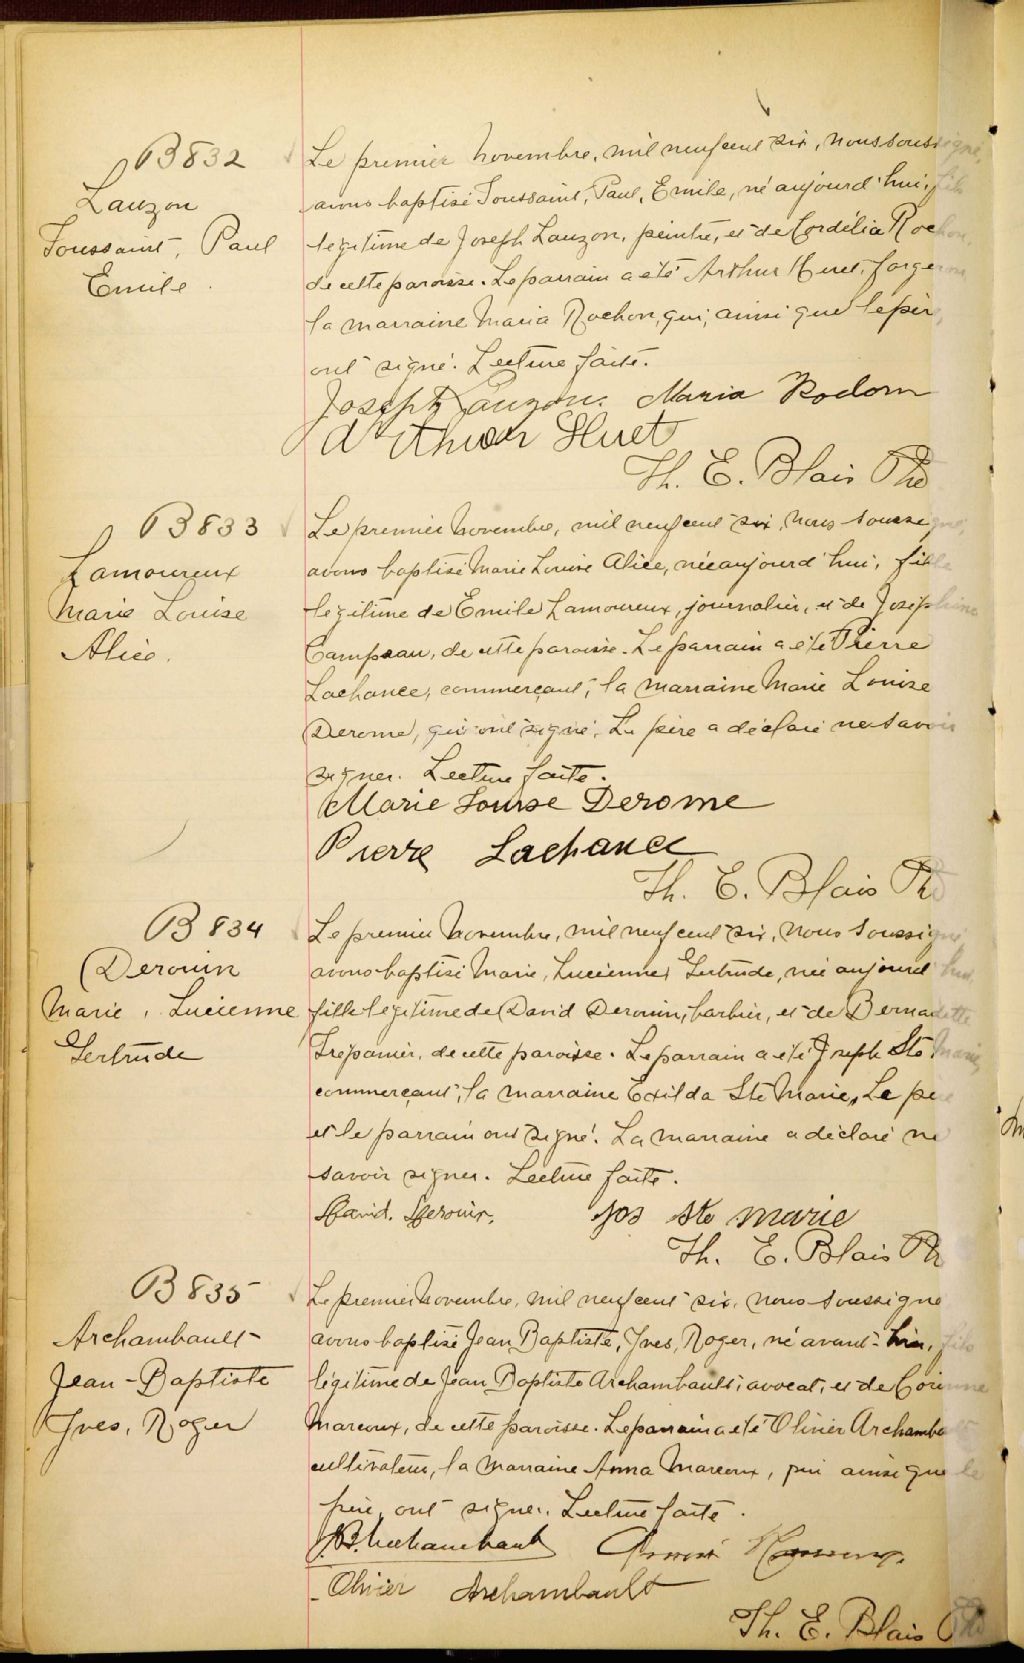 B 832
Lauzon
Toussaint, Paul
Emile.
Le premier Novembre, mil neuf cent six, nous soussigné,
avons baptisé Toussaint, Paul, Emile, né aujourd'hui, fils
légitime de Joseph Lauzon, peintre, et de Cordélia Rochon,
de cette paroisse. Le parrain a été Arthur Huet, forgeron
la marraine Maria Rochon, qui, ainsi que le père,
ont signé. Lecture faite.
Joseph Lauzon. Maria Rodom
Arthur Huet
Th. E. Blais Ptre
B 833
Lamoureux
Marie Louise
Alice.
Le premier Novembre, mil neuf cent six, nous soussigné,
avons baptisé Marie Louise Alice, née aujourd'hui, fille
légitime de Emile Lamoureux, journalier, et de Joséphine
Campeau, de cette paroisse. Le parrain a été Pierre
Lachance, commerçant, la marraine Marie Louise
Derome, qui ont signé. Le père a déclaré ne savoir
signer. Lecture faite.
Marie Louise Derome
Pierre Lachance
Th. E. Blais Ptre
B 834
Derouin
Marie, Lucienne
Gertrude
Le premier Novembre, mil neuf cent six, nous soussigné,
avons baptisé Marie, Lucienne, Gertrude, née aujourd'hui,
fille légitime de David Derouin, barbier, et de Bernadette
Trépanier, de cette paroisse. Le parrain a été Joseph Ste Marie,
commerçant, la marraine Exilda Ste Marie, Le père
et le parrain ont signé. La marraine a déclaré ne
savoir signer. Lecture faite.
David. Derouin. Jos Ste marie
Th. E. Blais Ptr
B 835
Archambault
Jean-Baptiste
Yves, Roger
Le premier Novembre, mil neuf cent six, nous soussigné
avons baptisé Jean Baptiste, Yves, Roger, né avant-hier, fils
légitime de Jean Baptiste Archambault, avocat, et de Corinne
Marcoux, de cette paroisse. Le parrain a été Olivier Archambault
cultivateur, la marraine Anna Marcoux, qui ainsi que le
père, ont signer. Lecture faite.
J.B. Archambault
Olivier Archambault
Th. E. Blais Ptre